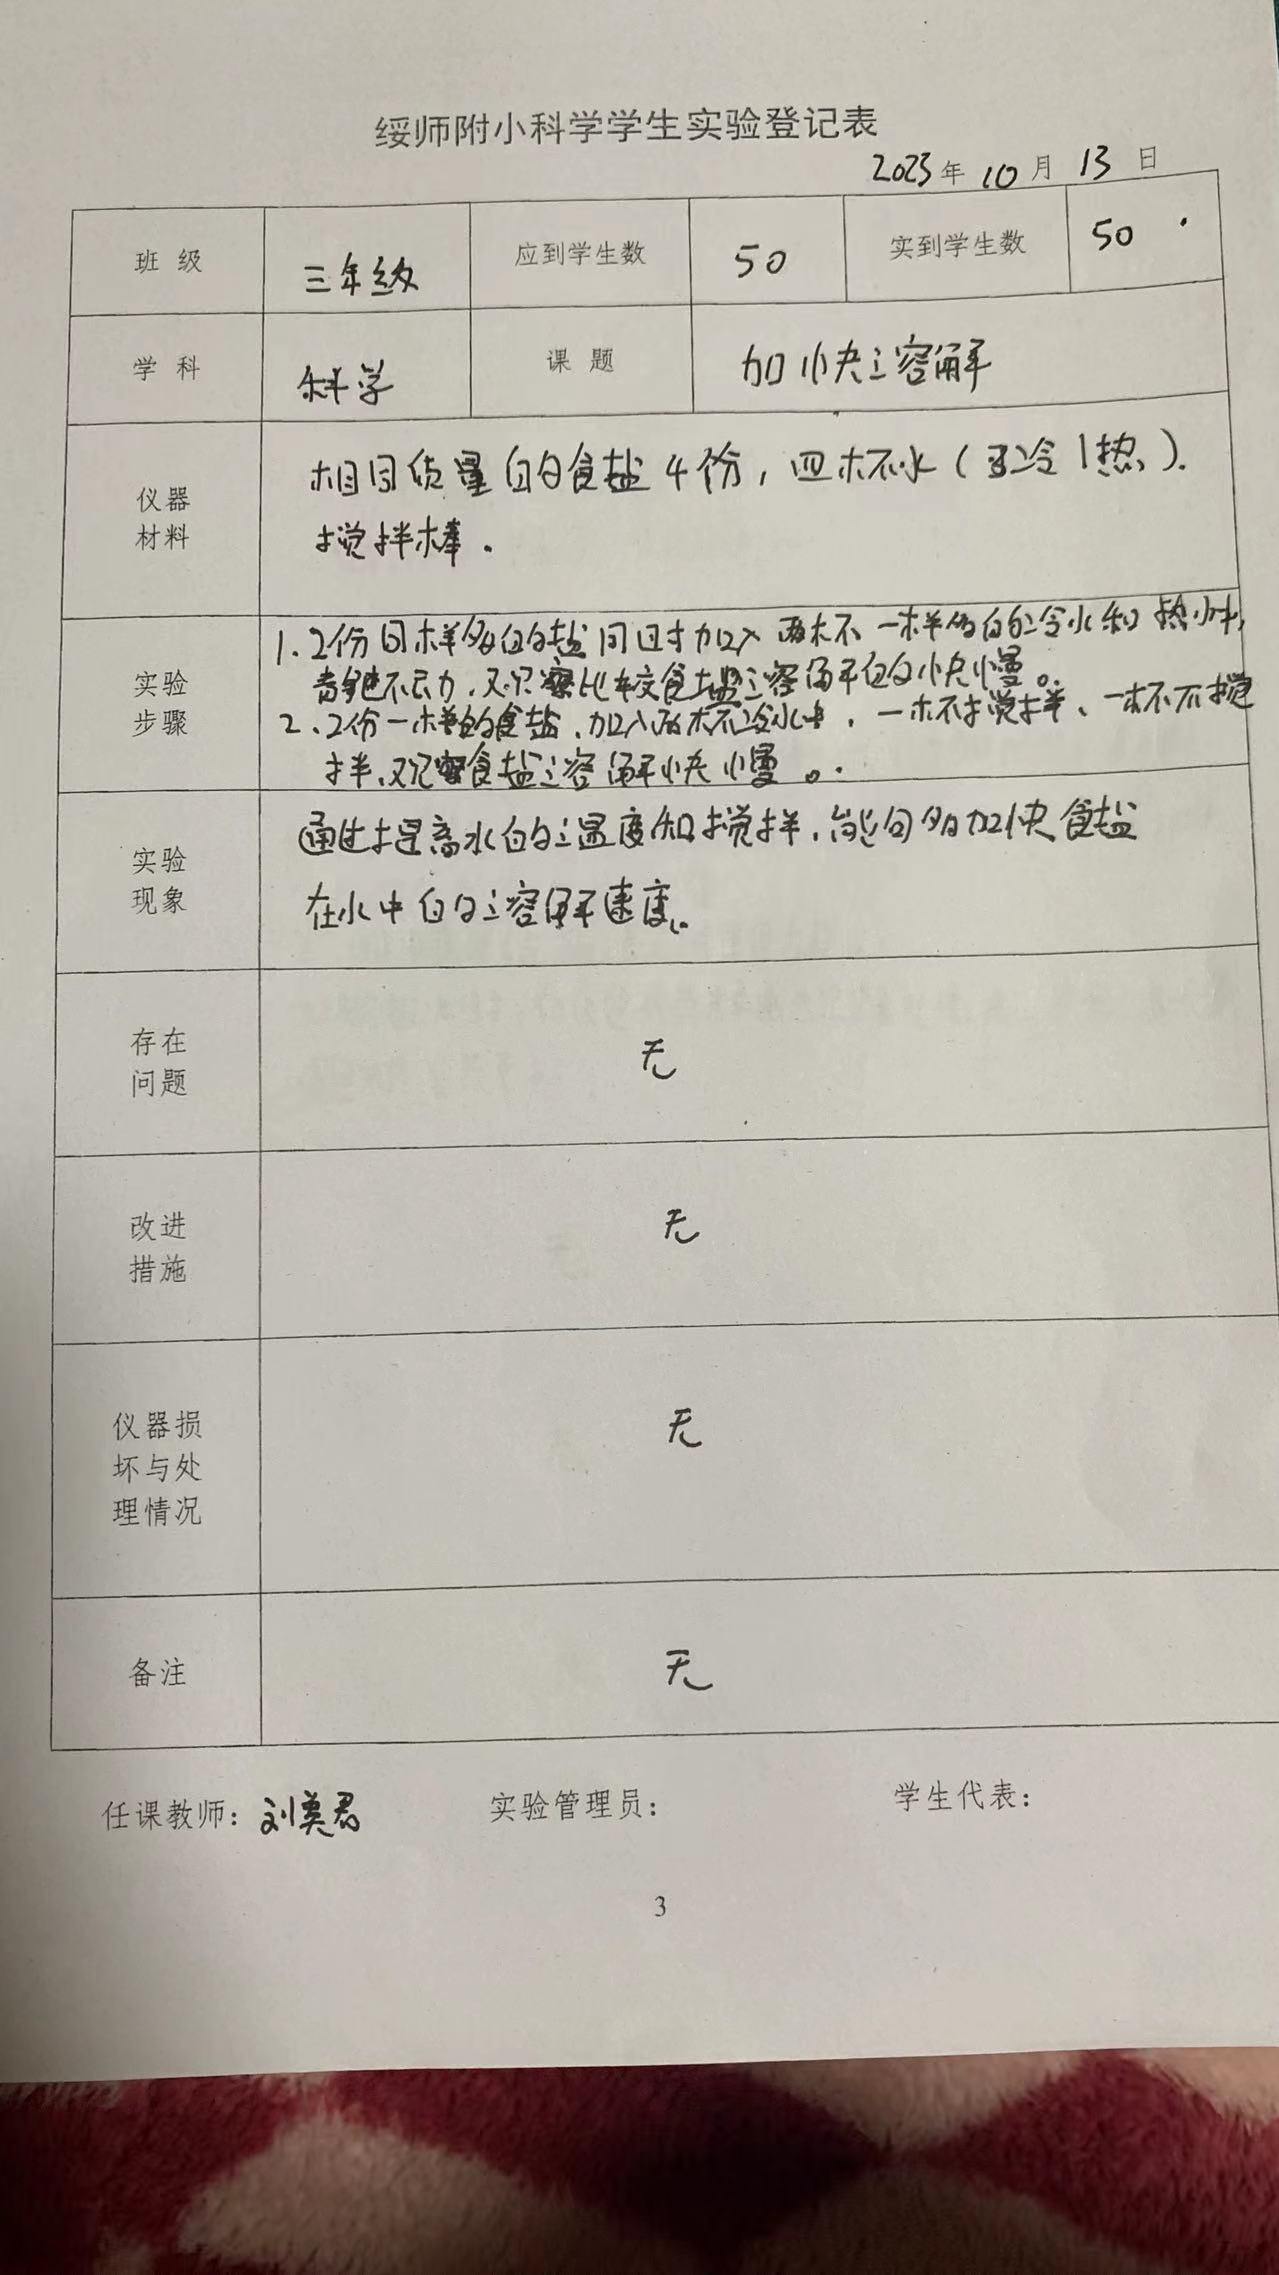 绥师附小科学学生实验登记表
2023年10月13日
班级 三年级 应到学生数 50 实到学生数 50
学科 科学 课题 加快溶解
仪器材料
相同质量的食盐4份，四杯水（3冷1热）.
搅拌棒.
实验步骤
1.2份同样多的盐同时加入两杯一样多的冷水和热水中,
静不动,观察比较食盐溶解的快慢。
2.2份一样的食盐,加入两杯冷水中,一杯搅拌、一杯不搅
拌,观察食盐溶解快慢。
实验现象
通过提高水的温度和搅拌,能够加快食盐
在水中的溶解速度.
存在问题
无
改进措施
无
仪器损坏与处理情况
无
备注
无
任课教师: 刘英君 实验管理员: 学生代表:
3